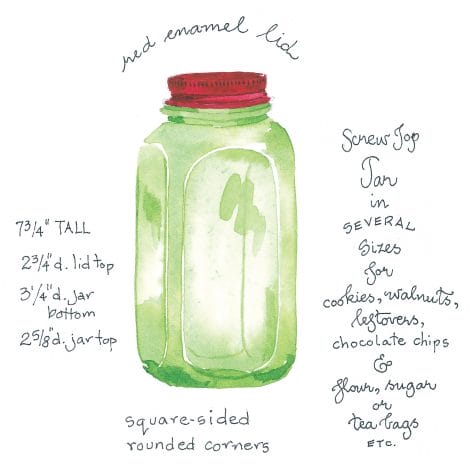 red enamel lid
7 3/4" TALL
2 3/4"d. lid top
3 1/4"d. jar
bottom
2 5/8"d. jar top
Screw Top
Jar
in
SEVERAL
Sizes
for
cookies, walnuts,
leftovers,
chocolate chips
&
flour, sugar
or
tea bags
ETC.
square-sided
rounded corners